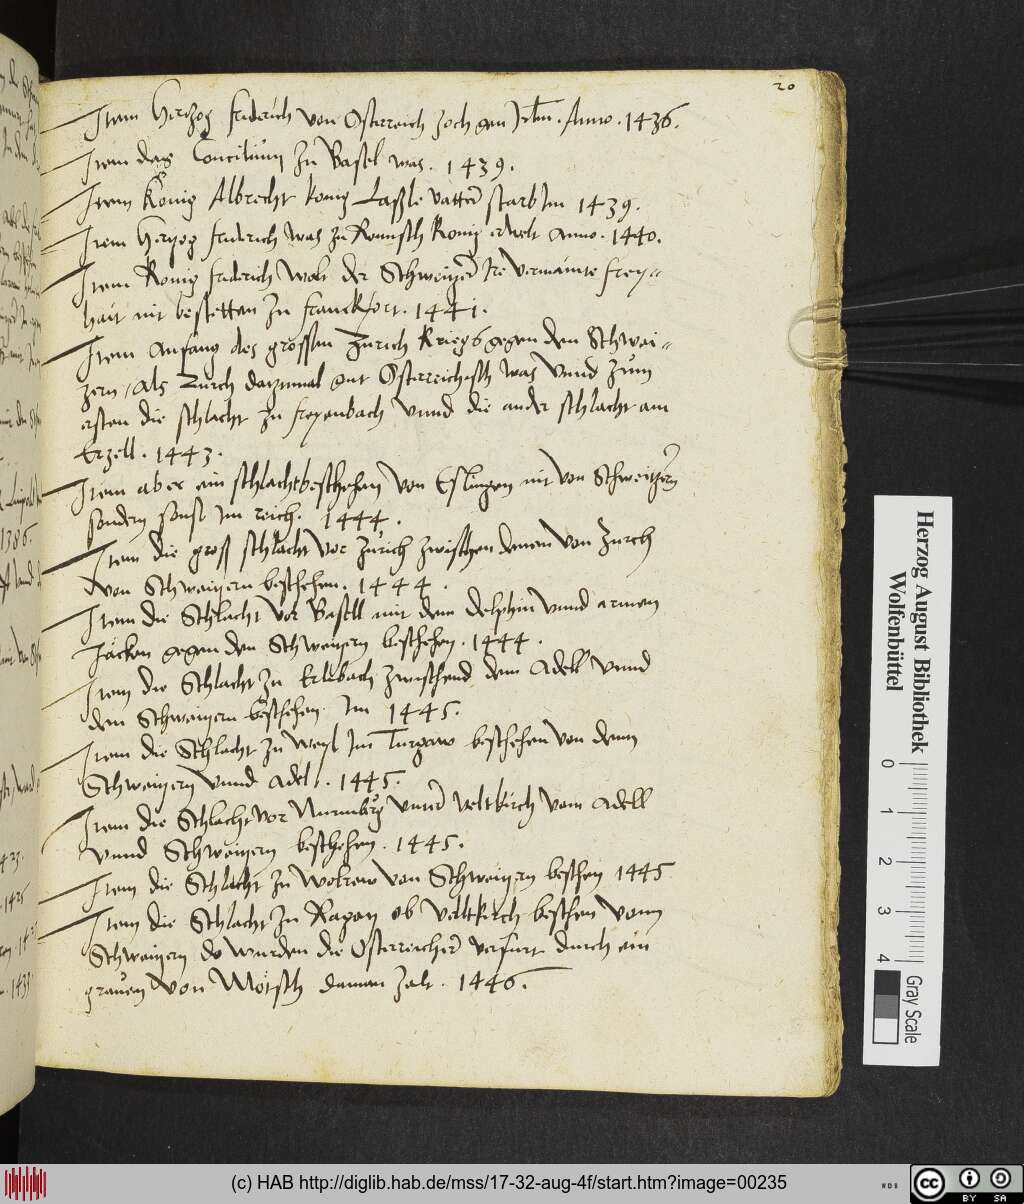 20
Item Hertzog friderich von Osterreich zoch gen Jrlm. Anno. 1436.
Item das Concilium zu Basel was. 1439.
Item König Albrecht konig Laßle vatter starb Im 1439.
Item Hertzog friderich was zu Römisch konig erwelt Anno. 1440.
Item konig friderich wolt der Schweitzer Ire vermainte frey=
hait nit bestetten zu franckfort. 1441.
Item Anfang des grossen Zürich kriegs gegen den Schwei=
zern / Als Zurch dazumal gut Osterreichisch was vnnd zum
ersten die schlacht zu freyenbach vnnd die ander schlacht am
Erzell. 1443.
Item aber ein schlacht beschehen von Eslingen nit von Schweitzern
sondern sonst im reich. 1444.
Item die gross schlacht vor Zürich zwischen denen von Zurch
von Schweitzern beschehen. 1444.
Item die Schlacht vor Basell mit dem delphin vnnd armen
Jäcken gegen den Schweitzern beschehen. 1444.
Item die Schlacht zu Erlibach zwuschend dem Adell vnnd
den Schweitzern beschehen Im 1445.
Item die Schlacht zu Weyl Im Turgaw beschehen von denn
Schweitzern vnnd Adel. 1445.
Item die Schlacht vor Nurmberg vnder veltkirch vom Adell
vnnd Schweitzern beschehen. 1445.
Item die Schlacht zu Wolrew von Schweitzern beschehen 1445
Item die Schlacht zu Ragatz ob veltkirch beschen vonn
Schweitzern do wurden die Osterreicher verfurt durch ein
grauen von Mötsch daman zalt. 1446.
1386.
1425
Herzog August Bibliothek
Wolfenbüttel
0 1 2 3 4
Gray Scale
(c) HAB http://diglib.hab.de/mss/17-32-aug-4f/start.htm?image=00235
WDB
cc BY SA